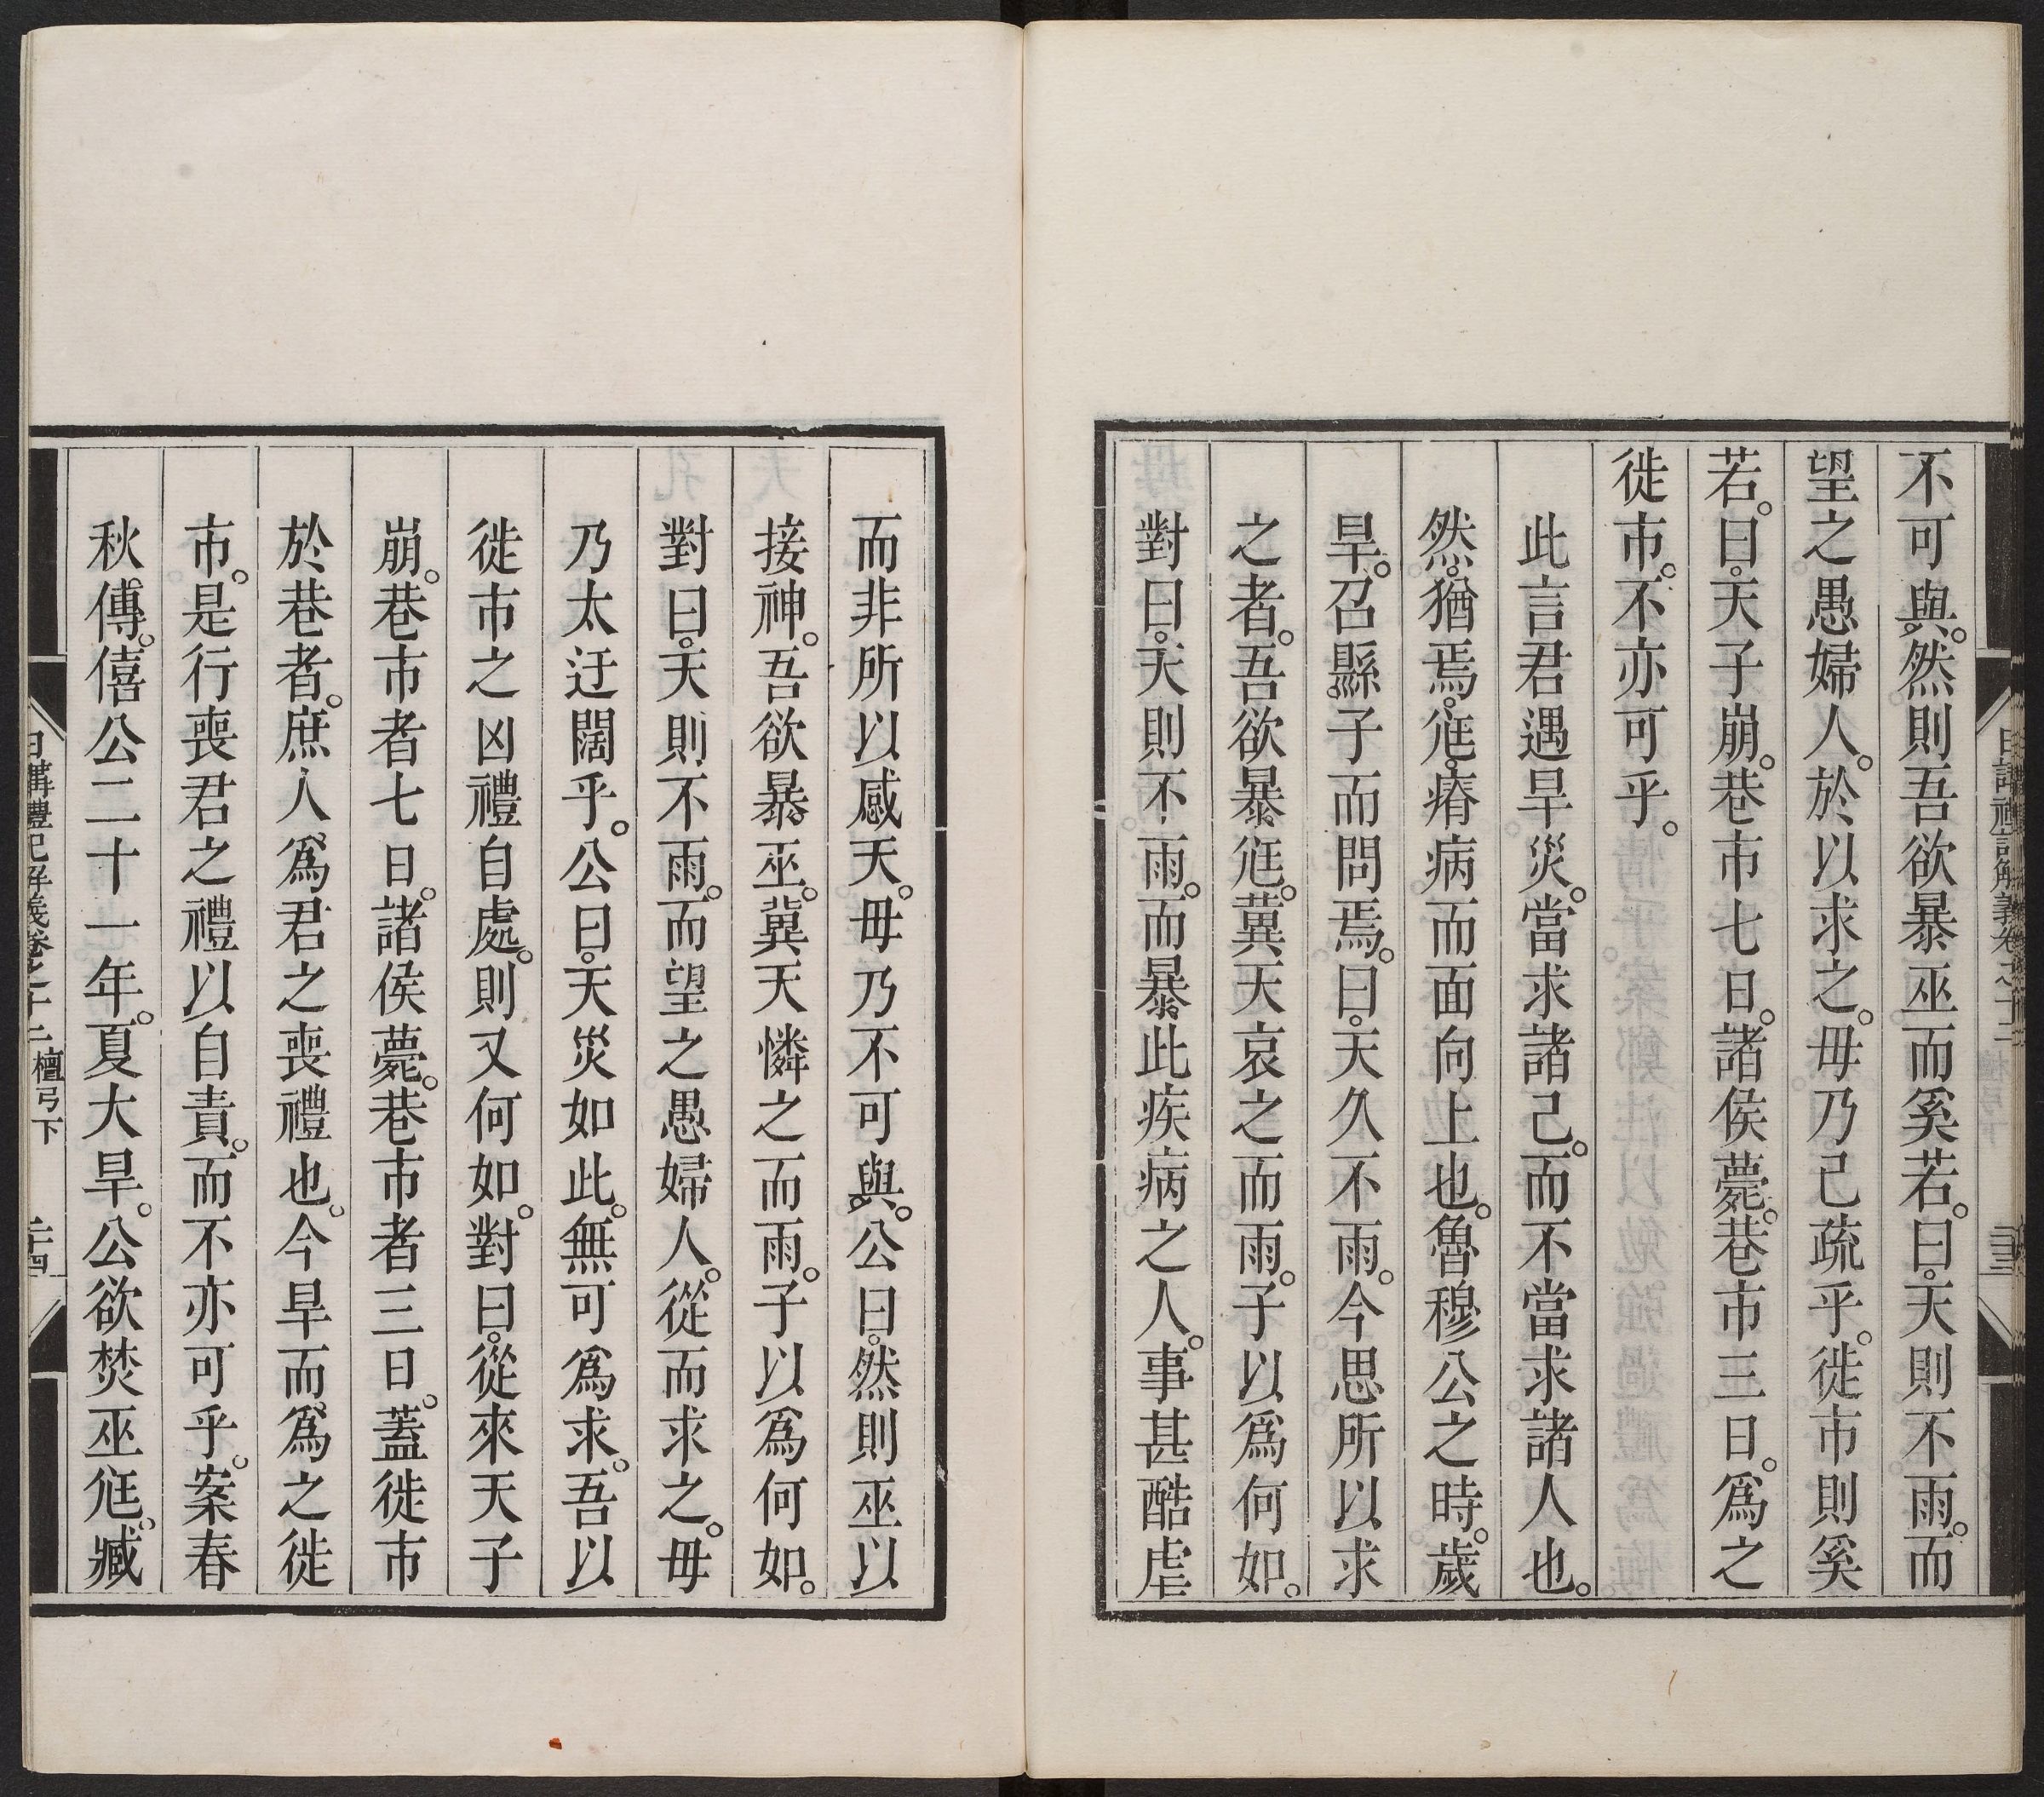 不可與。然則吾欲暴巫而奚若。曰。天則不雨。而
望之愚婦人。於以求之。毋乃已疏乎。徙市則奚
若。曰。天子崩。巷市七日。諸侯薨。巷市三日。爲之
徙市。不亦可乎。
此言君遇旱災。當求諸己。而不當求諸人也。
然。猶焉。尫。瘠病而面向上也。魯穆公之時。歲
旱。召縣子而問焉。曰。天久不雨。今思所以求
之者。吾欲暴尫。冀天哀之而雨。子以爲何如。
對曰。天則不雨。而暴此疾病之人。事甚酷虐
而非所以感天。毋乃不可與。公曰。然則巫以
接神。吾欲暴巫。冀天憐之而雨。子以爲何如。
對曰。天則不雨。而望之愚婦人。從而求之。毋
乃太迂闊乎。公曰。天災如此。無可爲求。吾以
徙市之凶禮自處。則又何如。對曰。從來天子
崩。巷市者七日。諸侯薨。巷市者三日。蓋徙市
於巷者。庶人爲君之喪禮也。今旱而爲之徙
市。是行喪君之禮以自責。而不亦可乎。案春
秋傳。僖公二十一年。夏大旱。公欲焚巫尫。臧
日講禮記解義卷之十二 檀弓下 二十四